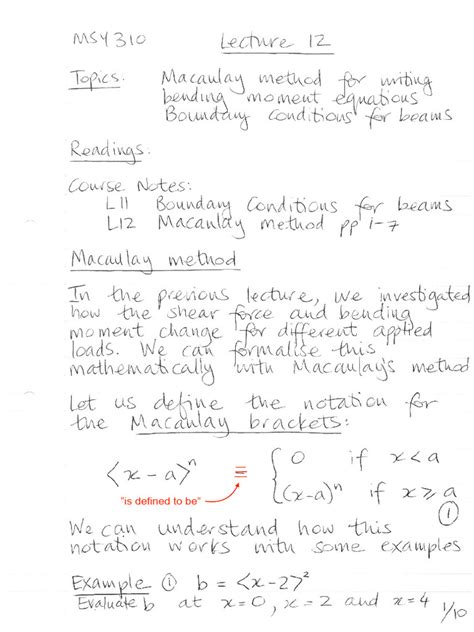 MSY310 Lecture 12
Topics: Macaulay method for writing
bending moment equations
Boundary conditions for beams
Readings:
Course Notes:
L11 Boundary Conditions for beams
L12 Macaulay method pp 1-7
Macaulay method
In the previous lecture, we investigated
how the shear force and bending
moment change for different applied
loads. We can formalise this
mathematically with Macaulay's method
Let us define the notation for
the Macaulay brackets:
⟨x-a⟩ⁿ ≡ { 0 if x<a
(x-a)ⁿ if x⩾a
"is defined to be"
①
We can understand how this
notation works with some examples
Example ① b = ⟨x-2⟩²
Evaluate b at x=0, x=2 and x=4
1/10